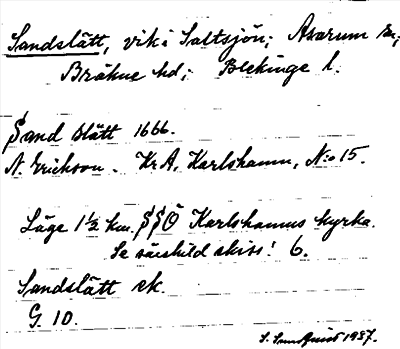 Sandslätt, vik i Saltsjön; Asarum sn;
Bräkne hd; Blekinge l.
Sand slätt 1666.
N. Erickson. KrA, Karlshamn, N:o 15.
Läge 1½ km. SSO Karlshamns kyrka.
Se särskild skiss! 6.
Sandslätt ek.
G. 10.
S. Sundquist 1937.